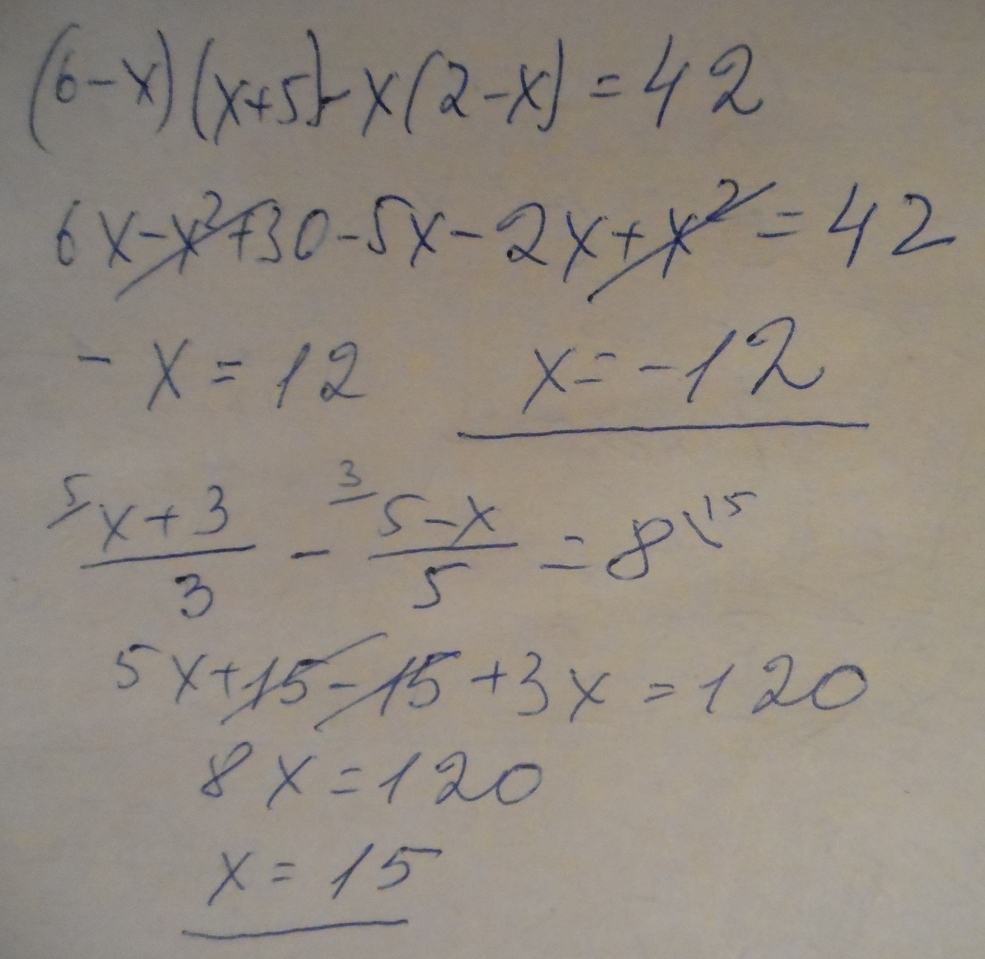 (6-x)(x+5)-x(2-x)=42
6x-x²+30-5x-2x+x²=42
-x=12 x=-12
5/ x+3/3 - 3/ 5-x/5 = 8\15
5x+15-15+3x=120
8x=120
x=15